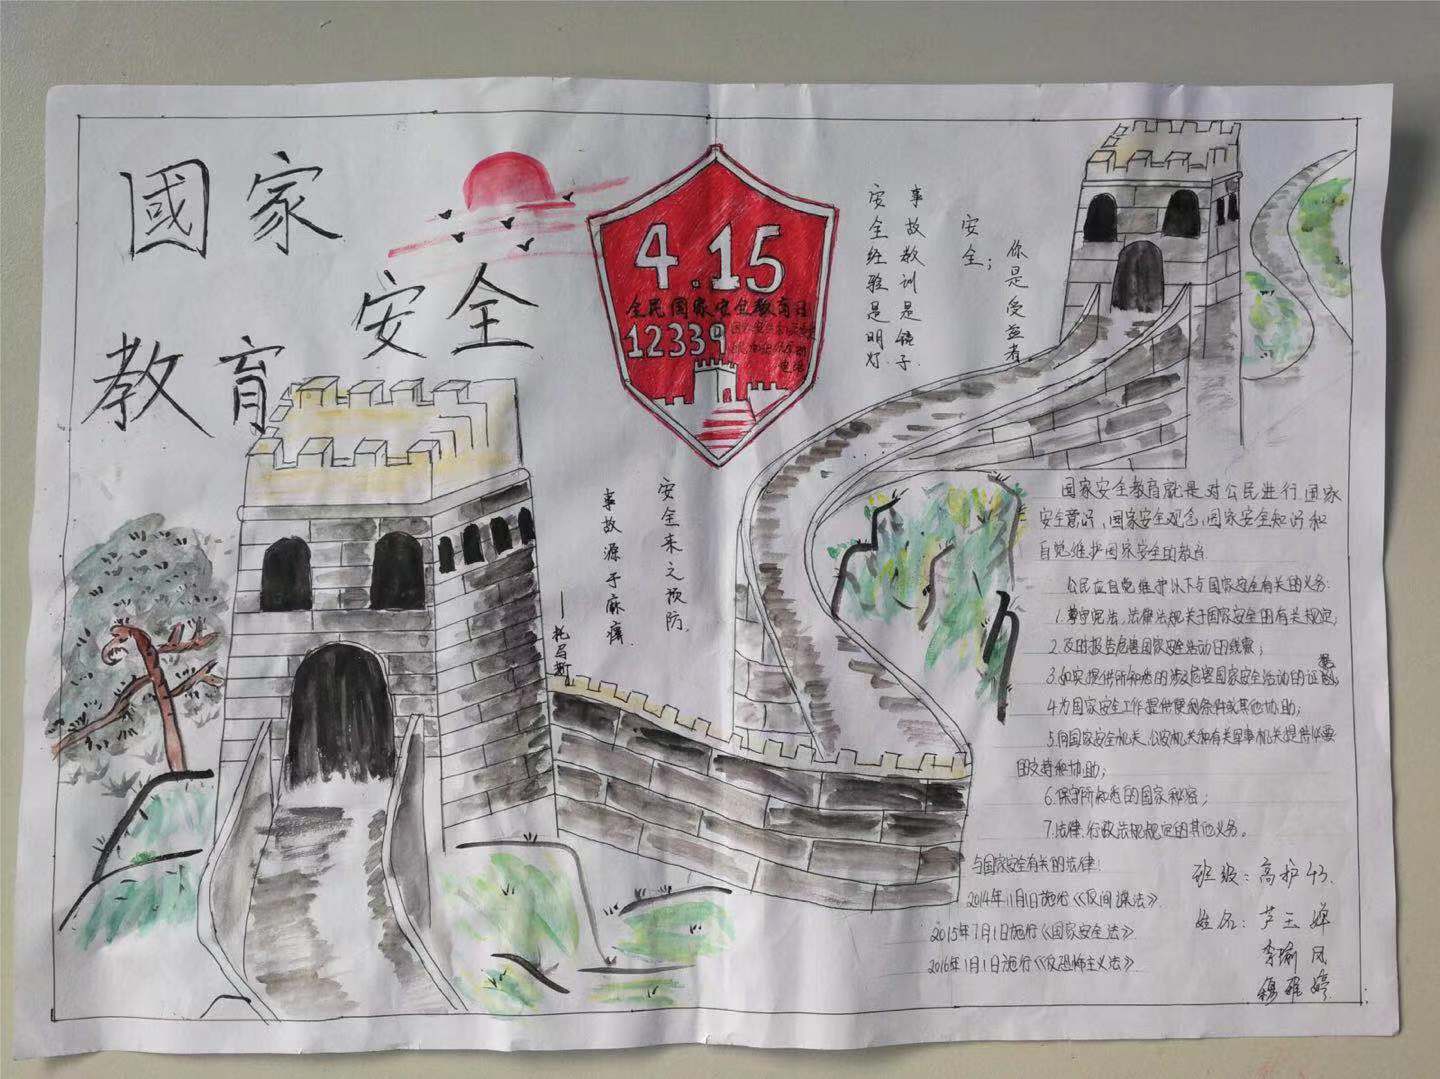 國家
安全
教育
4.15
全民国家安全教育日
12339
安全来之预防
事故源于麻痹
——托马斯
安全;
你是受益者
事故教训是镜子
安全经验是明灯
国家安全教育就是对公民进行国家
安全意识、国家安全观念、国家安全知识和
自觉维护国家安全的教育
公民应自觉维护以下与国家安全有关的义务:
1.尊守宪法、法律法规关于国家安全的有关规定;
2.及时报告危害国家安全活动的线索;
3.如实提供所知悉的涉及危害国家安全活动的证据;
4.为国家安全工作提供便利条件或其他协助;
5.向国家安全机关、公安机关和有关军事机关提供必要
的支持和协助;
6.保守所知悉的国家秘密;
7.法律、行政法规规定的其他义务。
与国家安全有关的法律:
2014年11月1日施行《反间谍法》
2015年7月1日施行《国家安全法》
2016年1月1日施行《反恐怖主义法》
班级:高护43.
姓名:芦玉婵
李瑜凤
穆雅婷